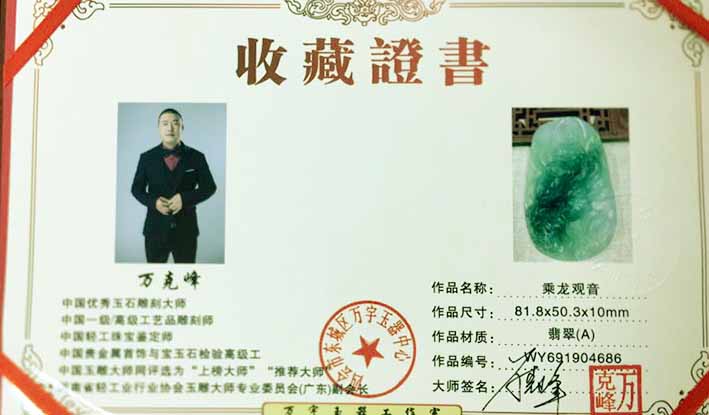 收藏證書
万克峰
中国优秀玉石雕刻大师
中国一级/高级工艺品雕刻师
中国轻工珠宝鉴定师
中国贵金属首饰与宝玉石检验高级工
中国玉雕大师网评选为“上榜大师” “推荐大师”
南省轻工业行业协会玉雕大师专业委员会(广东)副会长
会市东城区万宇玉器中心
作品名称： 乘龙观音
作品尺寸： 81.8x50.3x10mm
作品材质： 翡翠(A)
作品编号： WY691904686
大师签名：
万克峰
万宇玉器工作室